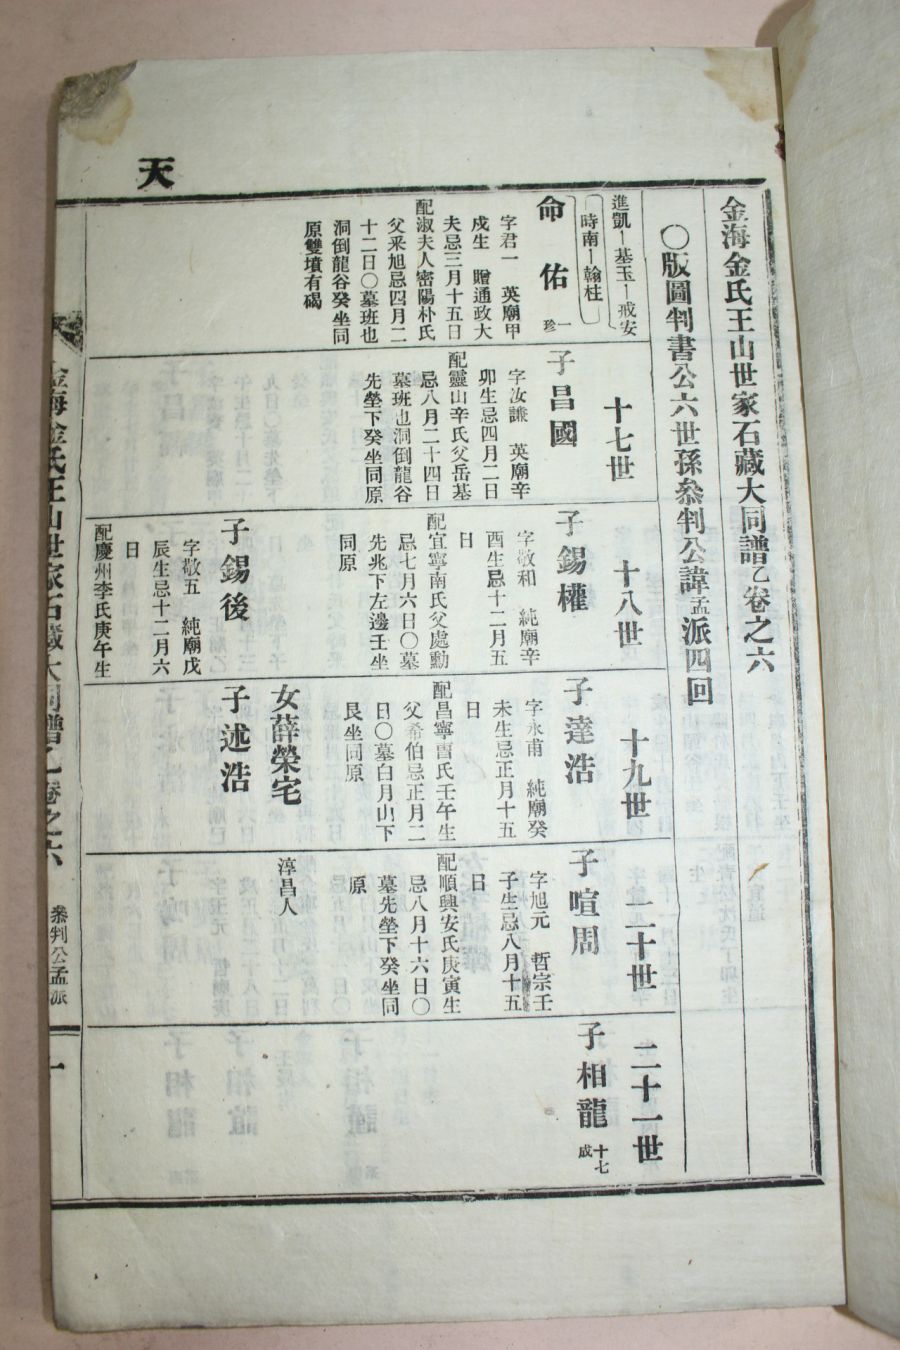 天
金海金氏王山世家石藏大同譜乙卷之六
〇版圖判書公六世孫叅判公諱孟派四回
進凱ー基玉ー戒安
時南ー翰柱
命佑
一珍
字君一 英廟甲
戍生 贈通政大
夫忌三月十五日
配淑夫人密陽朴氏
父釆旭忌四月二
十二日〇墓班也
洞倒龍谷癸坐同
原雙墳有碣
十七世
子昌國
字汝謙 英廟辛
卯生忌四月二日
配靈山辛氏父岳基
忌八月二十四日
墓班也洞倒龍谷
先塋下癸坐同原
十八世
子錫權
字敬和 純廟辛
酉生忌十二月五
日
配宜寧南氏父處勳
忌七月六日〇墓
先兆下左邊壬坐
同原
子錫後
字敬五 純廟戊
辰生忌十二月六
日
配慶州李氏庚午生
十九世
子達浩
字永甫 純廟癸
未生忌正月十五
日
配昌寧曺氏壬午生
父希伯忌正月二
日〇墓白月山下
艮坐同原
女薛榮宅
淳昌人
子述浩
二十世
子喧周
字旭元 哲宗壬
子生忌八月十五
日
配順興安氏庚寅生
忌八月十六日〇
墓先塋下癸坐同
原
二十一世
子相龍
十七
成
金海金氏王山世家石藏大同譜乙卷之六
叅判公孟派
一